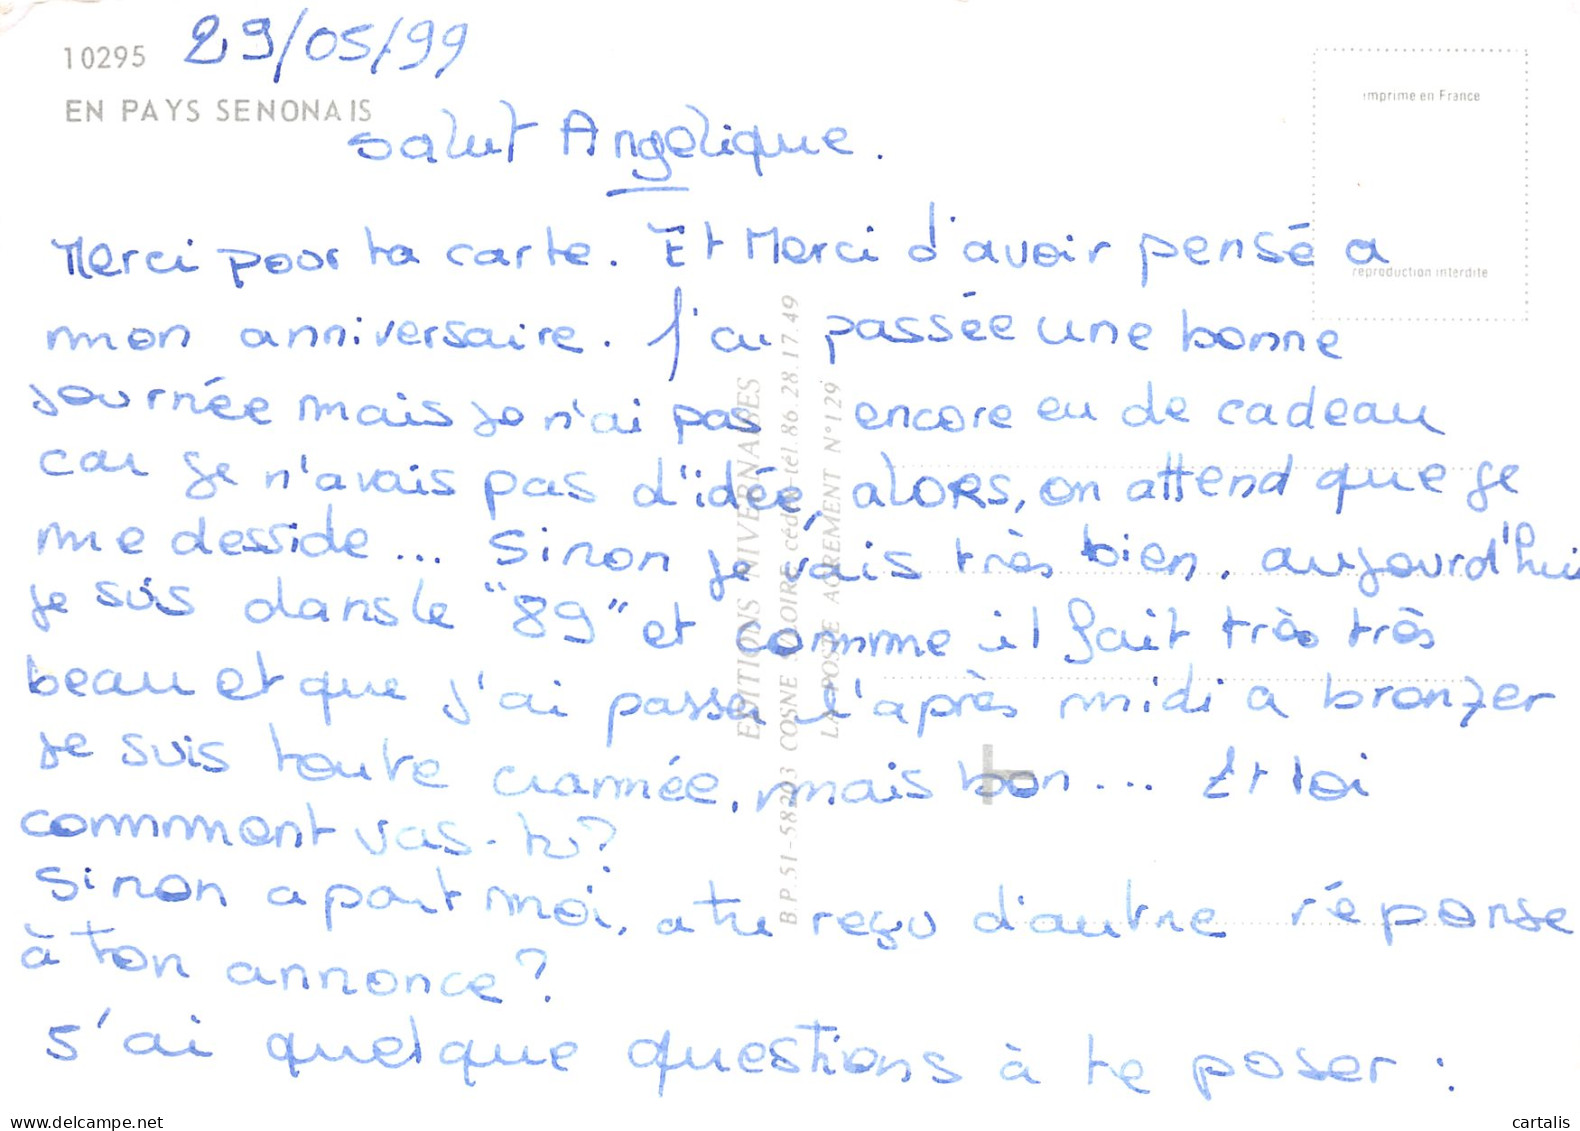 10295 29/05/99
EN PAYS SENONAIS
imprime en France
salut Angelique.
Merci pour ta carte. Et Merci d'avoir pensé a
reproduction interdite
mon anniversaire. J'ai passée une bonne
journée mais je n'ai pas encore eu de cadeau
car je n'avais pas d'idée, alors, on attend que je
me desside... Sinon je vais très bien. aujourd'hui
je suis dans le "89" et comme il fait très très
beau et que j'ai passer l'après midi a bronzer
je suis toute cramée, mais bon... Et toi
comment vas-tu?
Sinon a part moi, a tu reçu d'autre réponse
à ton annonce?
J'ai quelque questions à te poser :
EDITIONS NIVERNAISES
B.P.51-58203 COSNE S/LOIRE cédex-tél.86.28.17.49
LA POSTE AGREMENT N°129
cartalis
delcampe.net